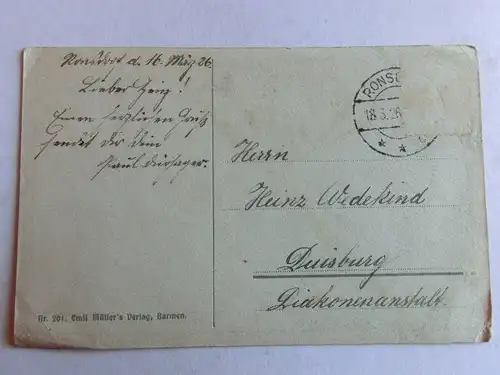 Ronsdorf d. 16. März 26
Lieber Heinz!
Einen herzlichen Gruß
sendet dir dein
Paul
RONSD
18.3.26
Herrn
Heinz Wedekind
Duisburg
Diakonenanstalt.
Nr. 201. Emil Müller's Verlag, Barmen.